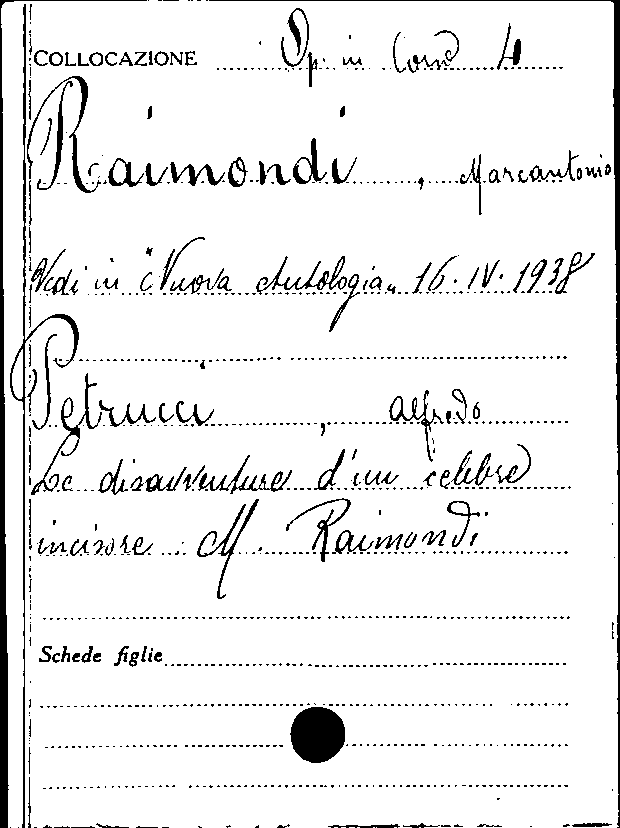 COLLOCAZIONE Op. in Cons 4
Raimondi, Marcantonio
Vedi in "Nuova Antologia" 16.IV.1938
Petrucci, Alfredo
Le disavventure d'un celebre
incisore: M. Raimondi
Schede figlie